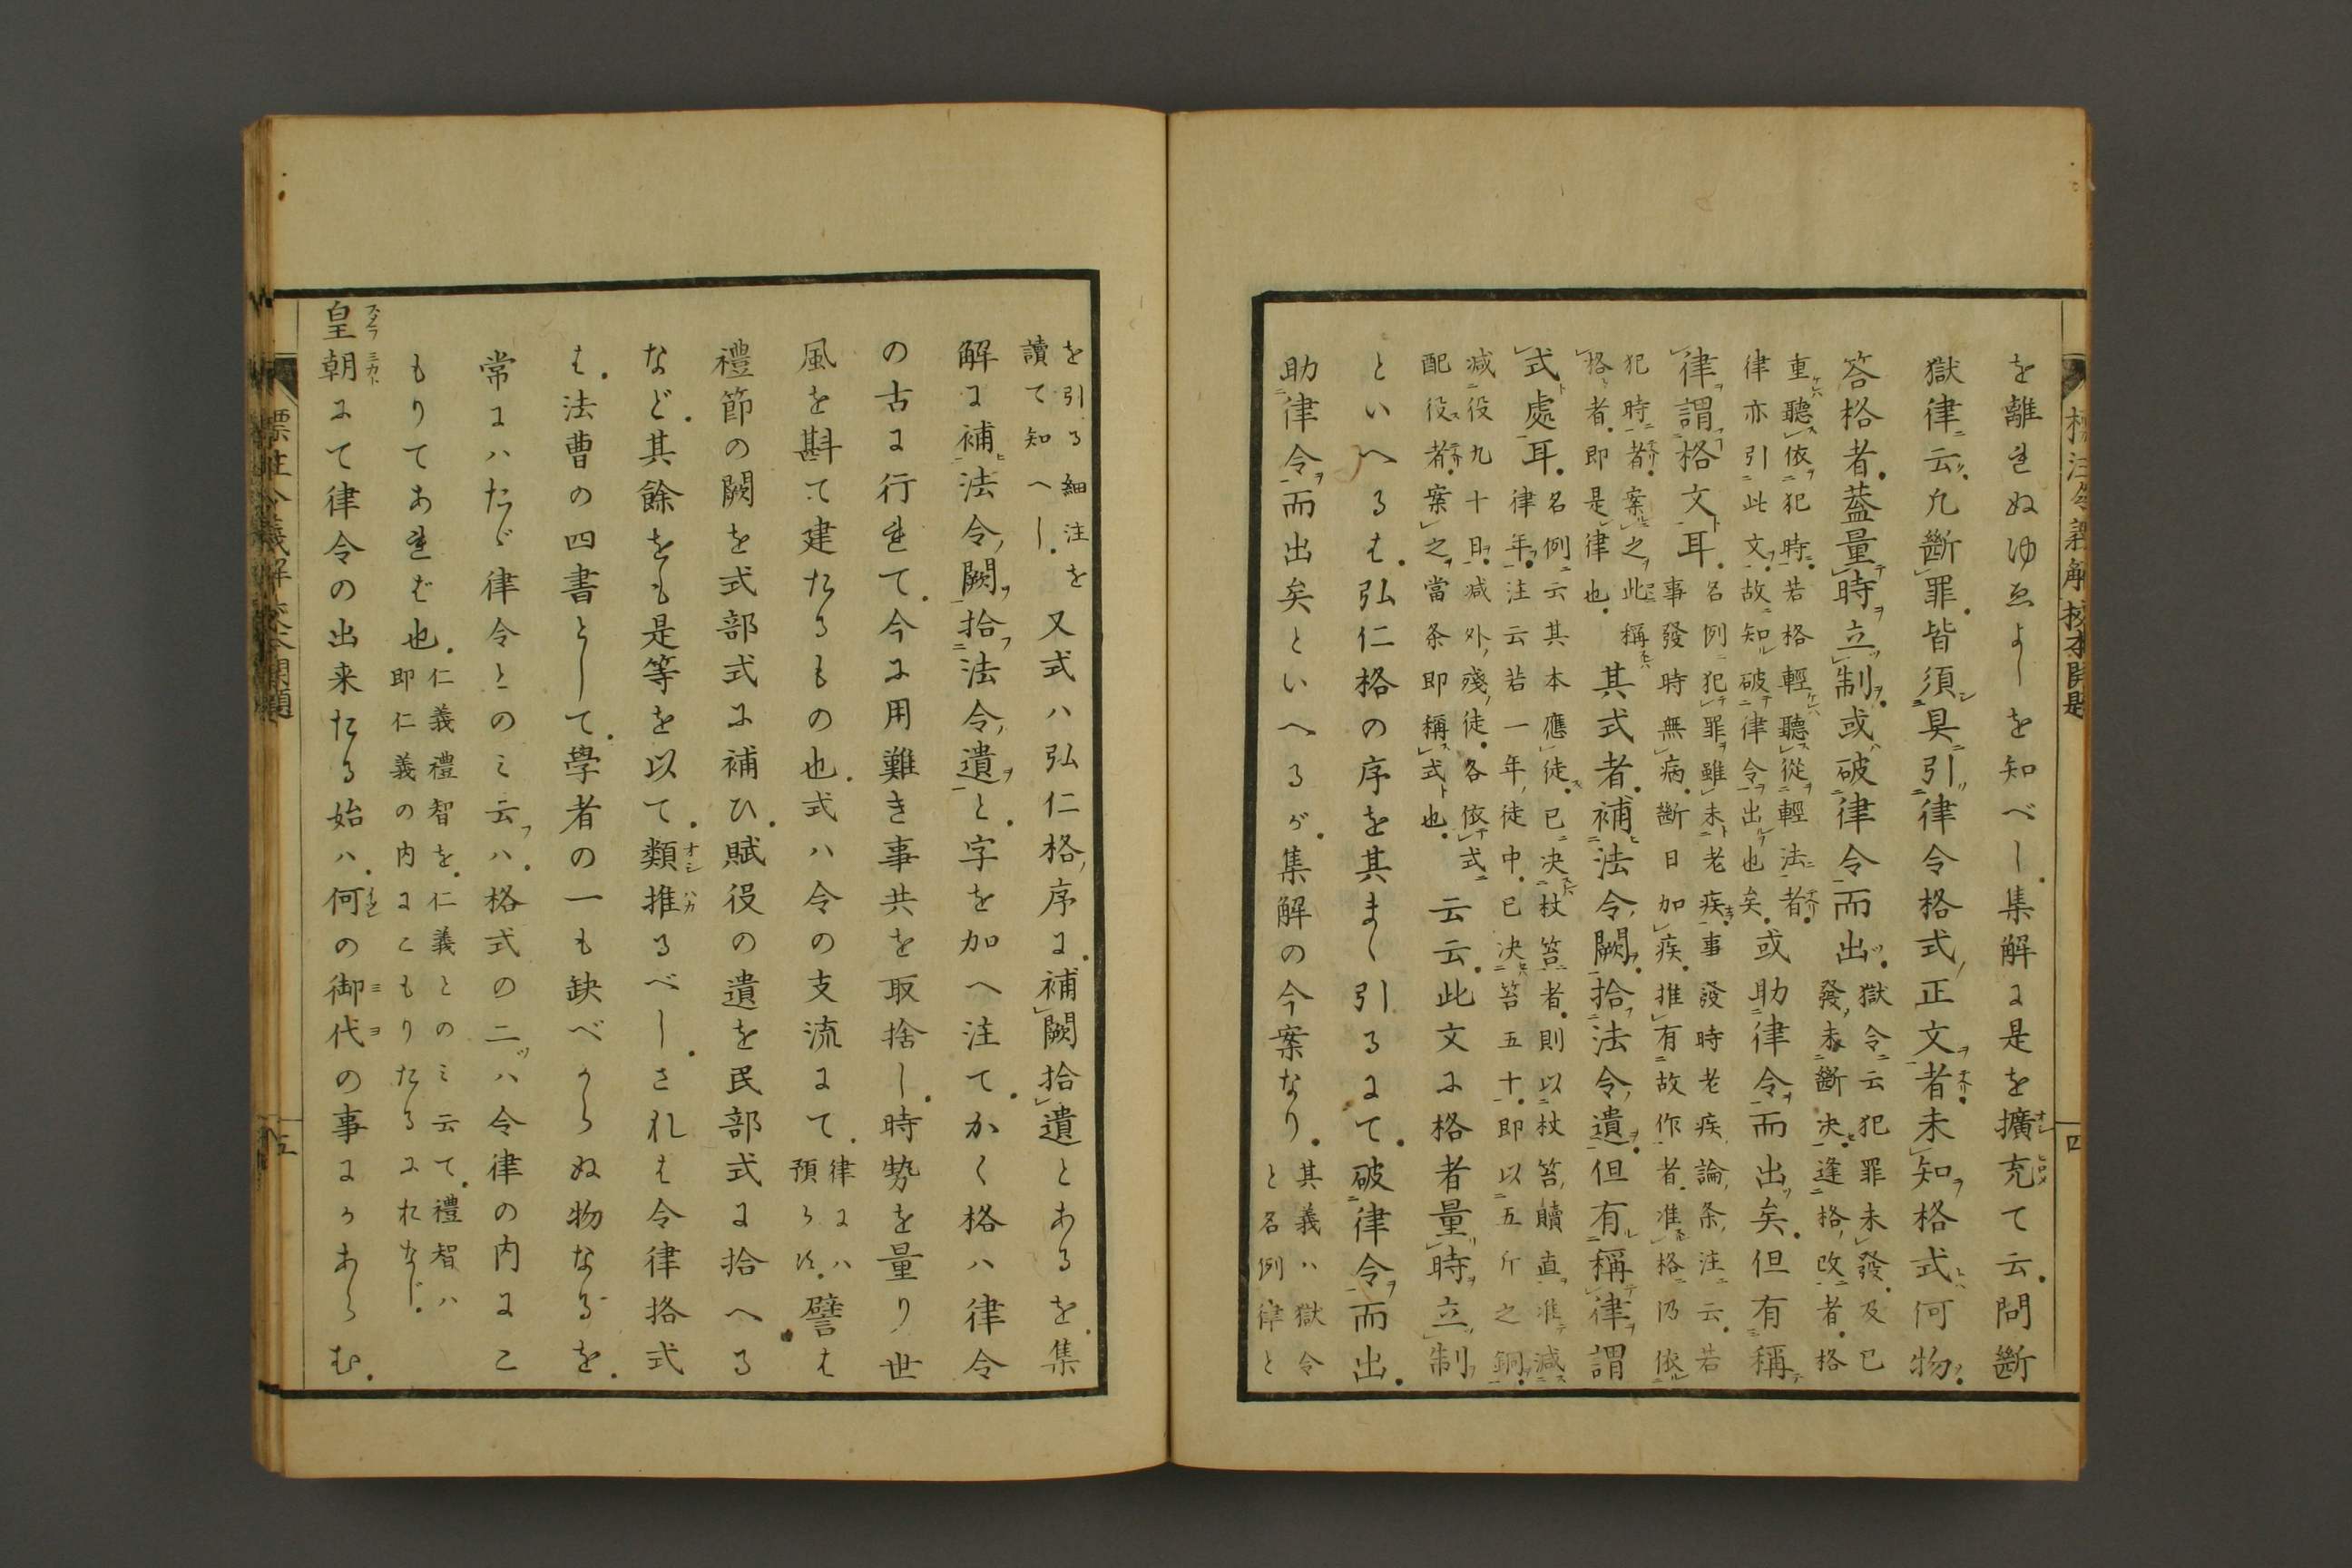 を離れぬゆゑよしを知べし集解に是を擴充て云問斷
獄律云凢斷罪皆須具引律令格式正文者未知格式何物
答格者葢量時立制或破律令而出
獄令云犯罪未發及已
發未斷决逢格改者格
重聽依犯時若格輕聽從輕法者
律亦引此文故知破律令出也矣
或助律令而出矣但有稱
律謂格文耳
名例犯罪雖未老疾事發時老疾論条注云若
事發時無病斷日加疾推有故作者准格仍依
犯時者案之此稱
格者即是律也
其式者補法令闕拾法令遺但有稱律謂
式處耳
名例云其本應徒已决杖笞者則以杖笞贖直准減
律年注云若一年徒中已决笞五十即以五斤之銅
減役九十日減外殘徒各依式
配役者案之當条即稱式也
云云此文に格者量時立制
といへるは弘仁格の序を其まゝ引るにて破律令而出
助律令而出矣といへるが集解の今案なり
其義ハ獄令
と名例律と
を引る細注を
讀て知へし
又式ハ弘仁格序に補闕拾遺とあるを集
解に補法令闕拾法令遺と字を加へ注てかく格ハ律令
の古に行れて今に用難き事共を取捨し時勢を量り世
風を斟て建たるもの也式ハ令の支流にて
律にハ
預らず
譬は
禮節の闕を式部式に補ひ賦役の遺を民部式に拾へる
など其餘をも是等を以て類推るべしされは令律格式
は法曹の四書として學者の一も缺べからぬ物なるを
常にハたゞ律令とのミ云ハ格式の二ツハ令律の内にこ
もりてあれば也
仁義禮智を仁義とのミ云て禮智ハ
即仁義の内にこもりたるにおなじ
皇朝にて律令の出来たる始ハ何の御代の事にかあらむ
標注令義解校本開題
四
標註令義解校本開題
五